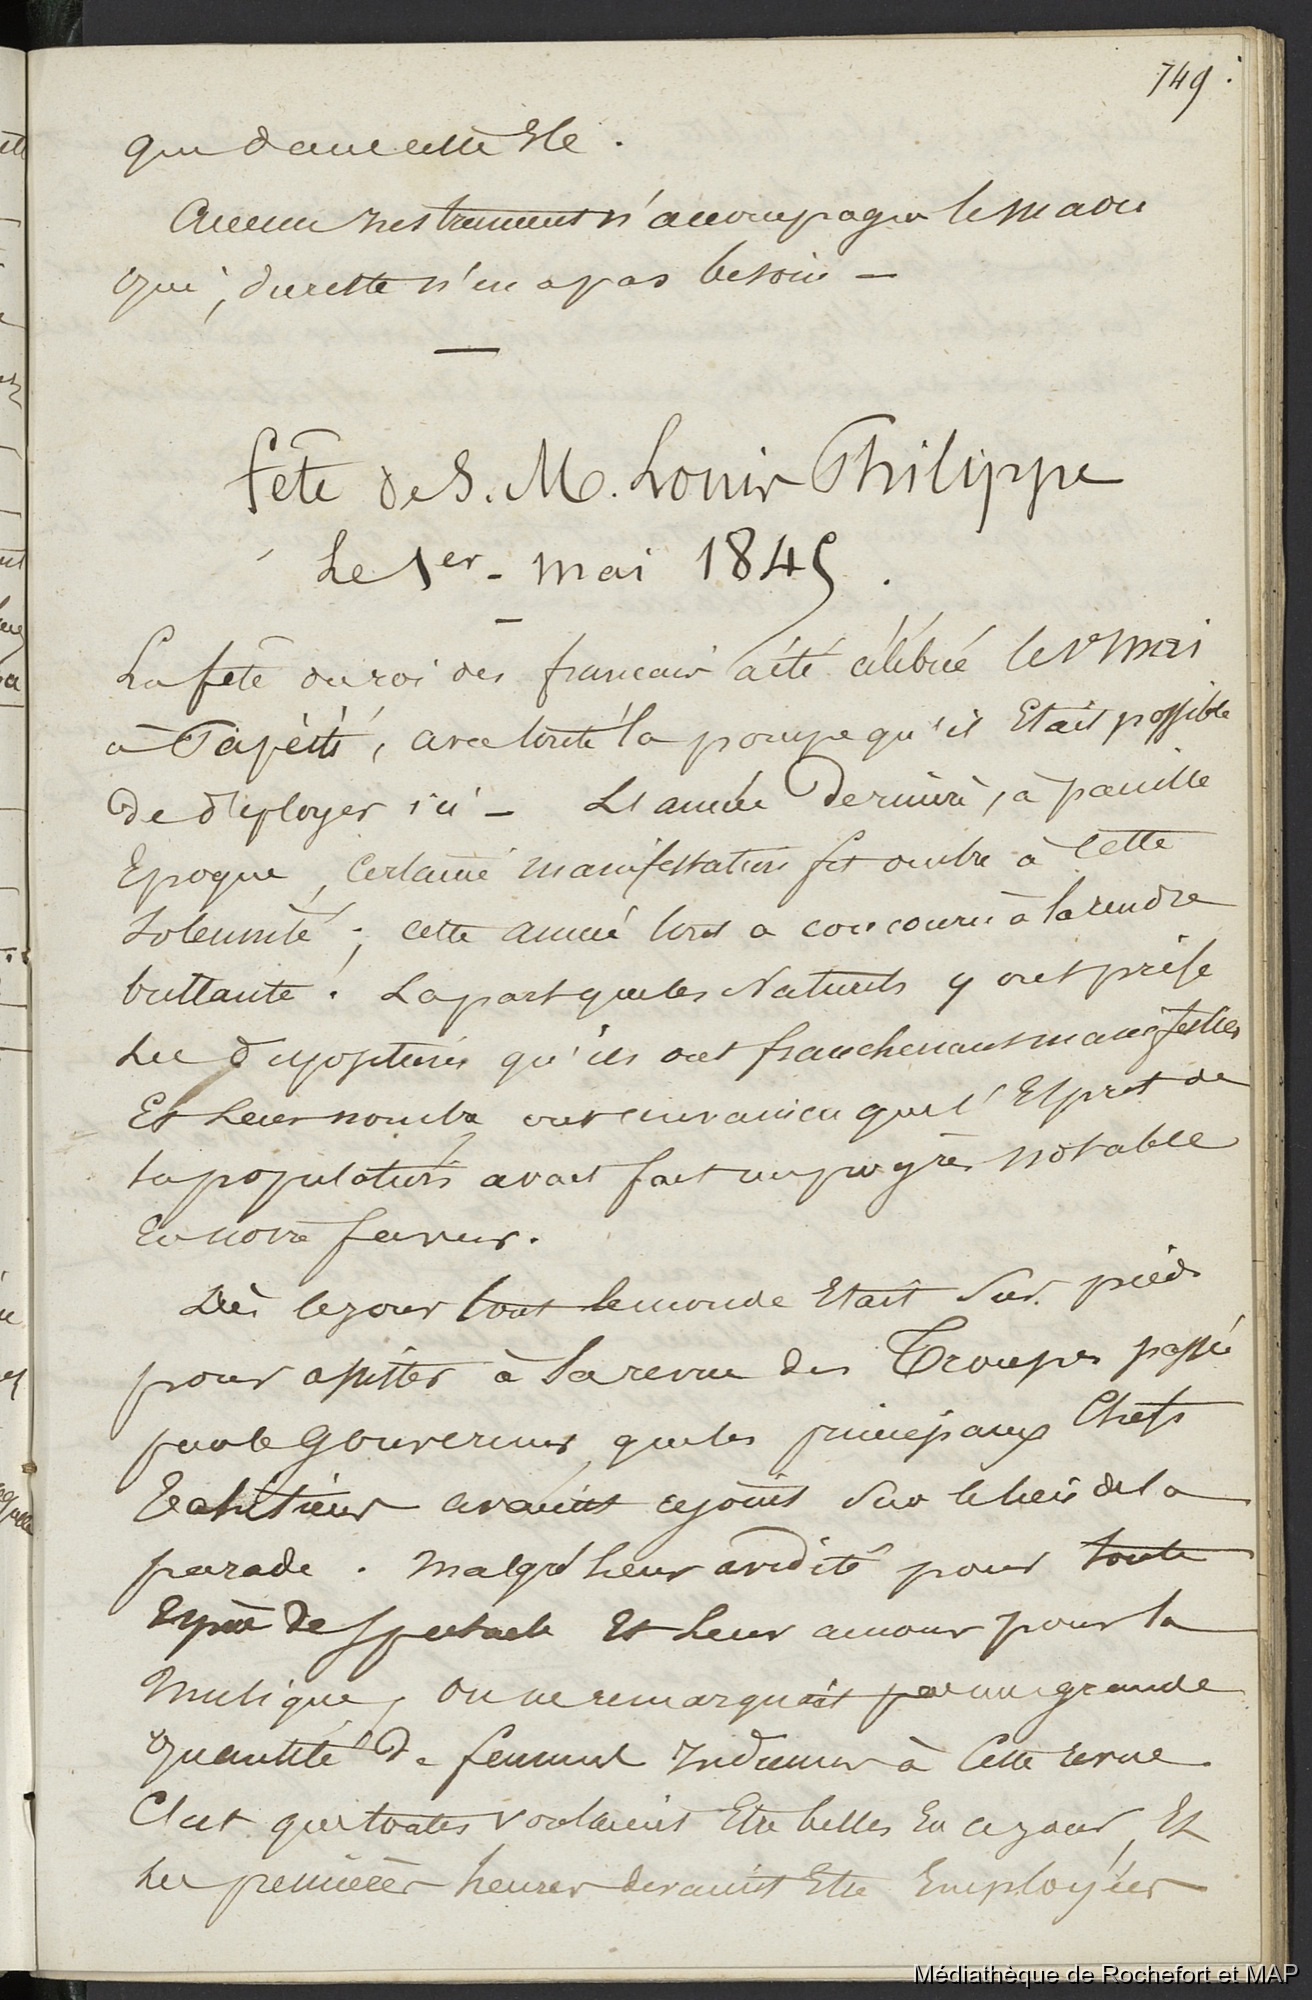 749.
que dans cette Ile.
Aucun Instrument n'accompagne le
qui, du reste n'en a pas besoin —
fête de S. M. Louis Philippe
Le 1er - mai 1845.
La fête du roi des francais a été célébrée le 1er mai
à Papéïti, avec toute la pompe qu'il Etait possible
de déployer ici - L'année dernière, à pareille
Epoque, Certaine manifestation fit ombre à cette
Solennité; cette année tout a concouru à la rendre
brillante. La part que les Naturels y ont prise
les dispositions qu'ils ont franchement manifestées
Et leur nombre ont convaincu que l'Esprit de
la population avait fait un progrès notable
En notre faveur.
Dès le jour tout le monde Etait Sur pied
pour assister à la revue des Troupes passée
par le Gouverneur que les principaux Chefs
Tahitiens avaient rejoint Sur le lieu de la
parade. Malgré leur avidité pour toute
Espèce de Spectacle Et leur amour pour la
Musique, on ne remarquait pas une grande
quantité de femmes Indiennes à Cette revue.
C'est que toutes voulaient Etre belles En ce jour, Et
les premières heures devaient Etre Employées
Médiathèque de Rochefort et MAP